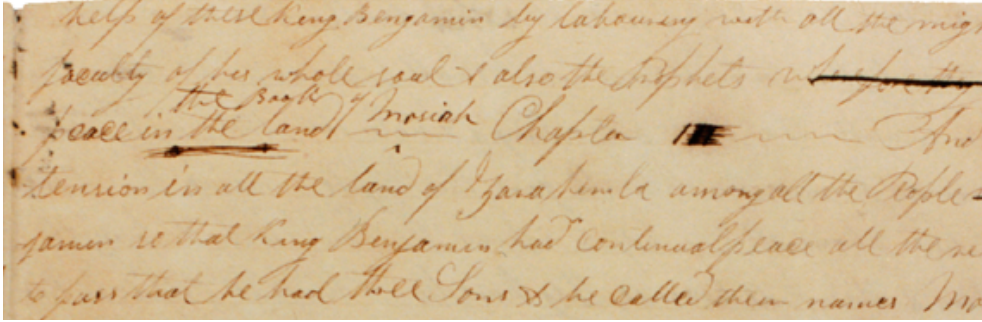 help of these King Benjamin by labouring with all the mig
faculty of his whole soul & also the Prophets
the Book of Mosiah
peace in the land Chapter And
tension in all the land of Zarahemla among all the People
jamin so that King Benjamin had continual peace all the re
to pass that he had three Sons & he called their names Mo